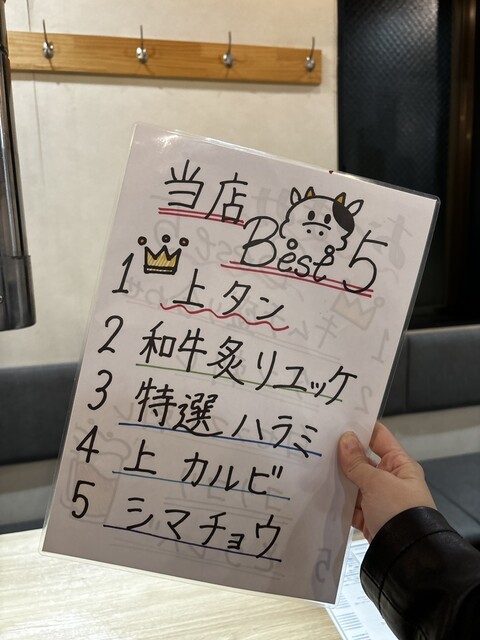 当店
Best 5
1 上タン
2 和牛炙リユッケ
3 特選ハラミ
4 上カルビ
5 シマチョウ